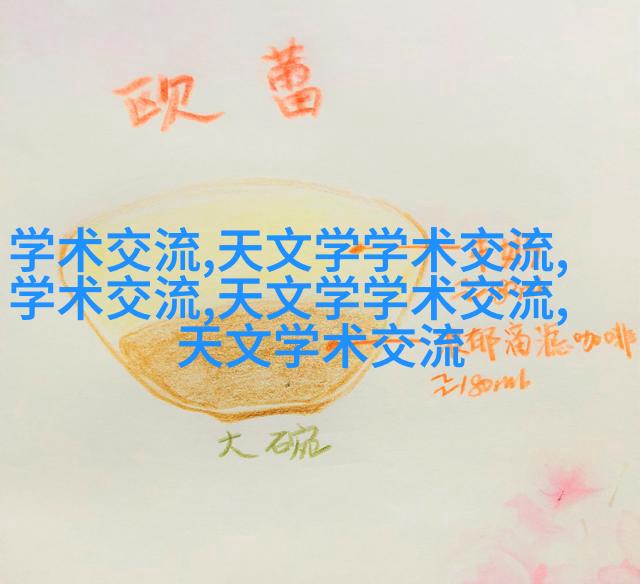 欧蕾
学术交流,天文学学术交流,
学术交流,天文学学术交流,
天文学术交流
郁滴滤咖啡
≈180ml
大碗